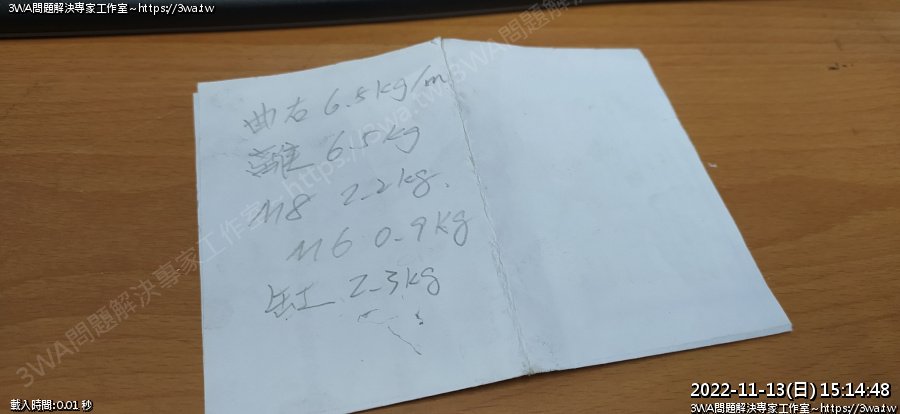 3WA問題解決專家工作室~https://3wa.tw
曲右 6.5kg/m
離 6.5kg
M8 2.2kg.
M6 0.9kg
缸 2.3kg
3WA問題解決專家工作室 https://3wa.tw 3WA問題解決專家工作室
載入時間:0.01 秒
2022-11-13(日) 15:14:48
3WA問題解決專家工作室~https://3wa.tw